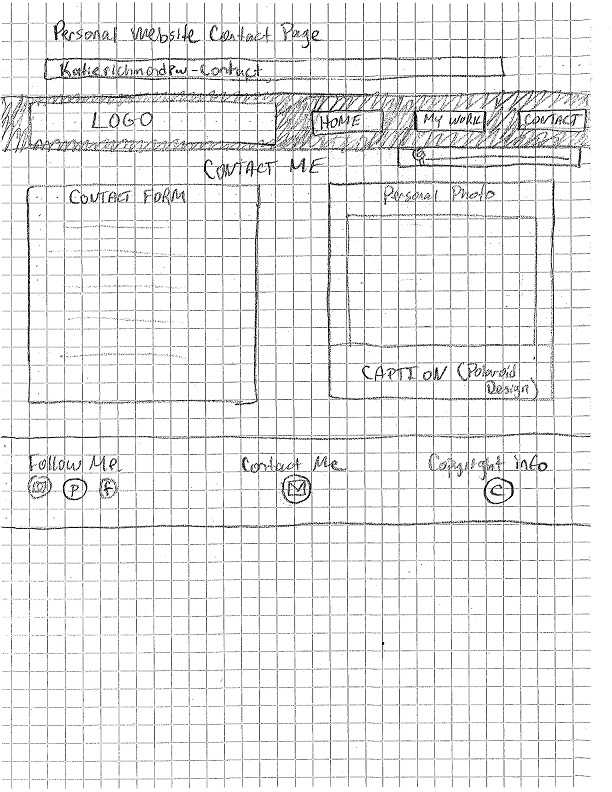 Personal Website Contact Page
Katierichmondpw-Contact
LOGO
HOME
MY WORK
CONTACT
CONTACT ME
CONTACT FORM
Personal Photo
CAPTION (Polaroid
Design)
Follow Me
Contact Me
Copyright info
P
f
C